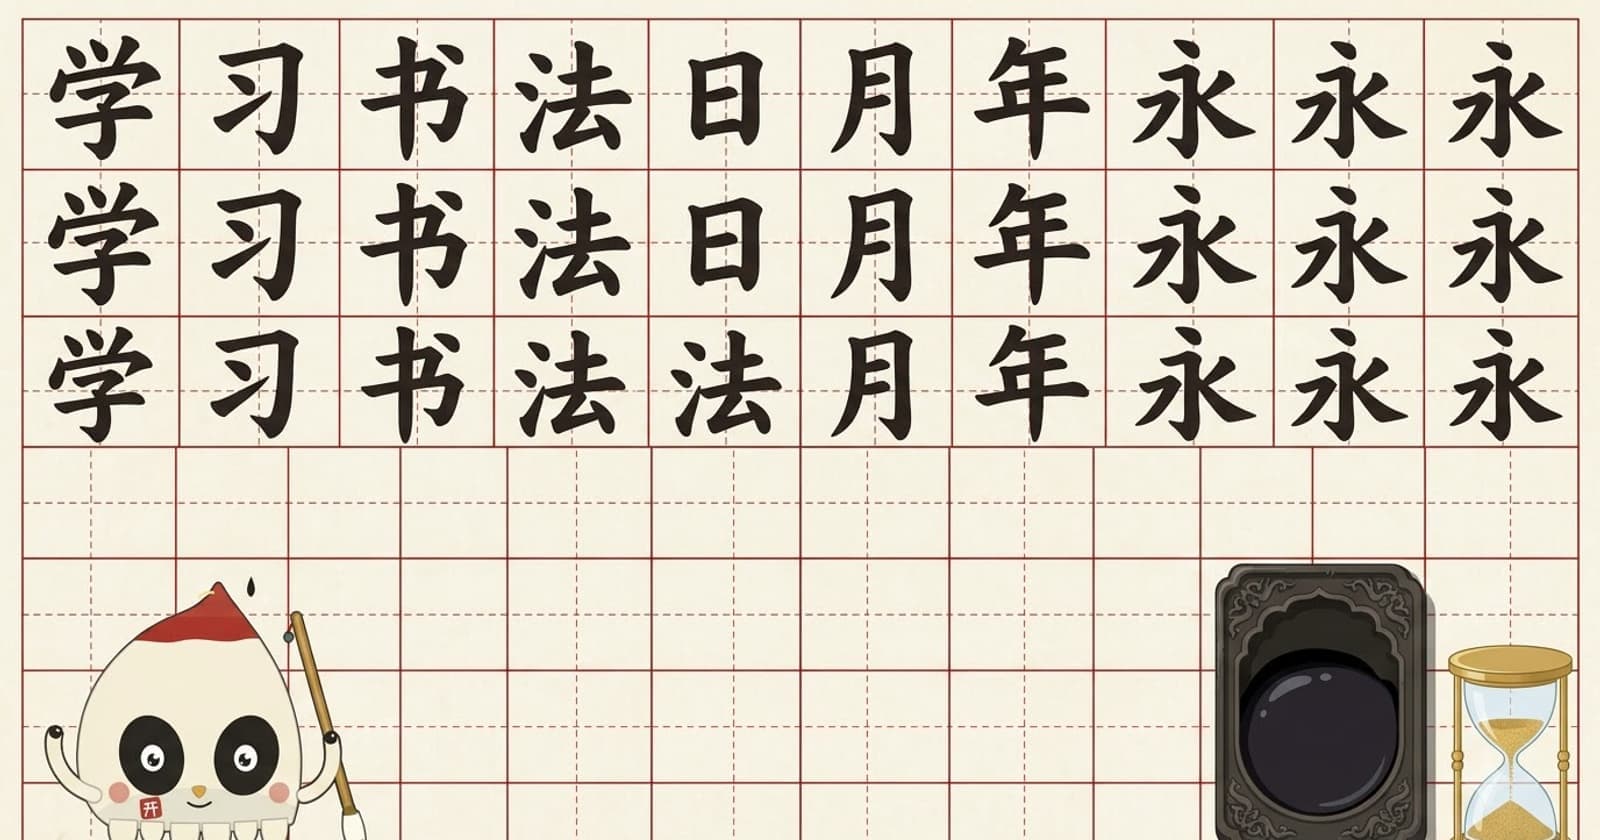 学习书法日月年永永永
学习书法日月年永永永
学习书法法月年永永永
开